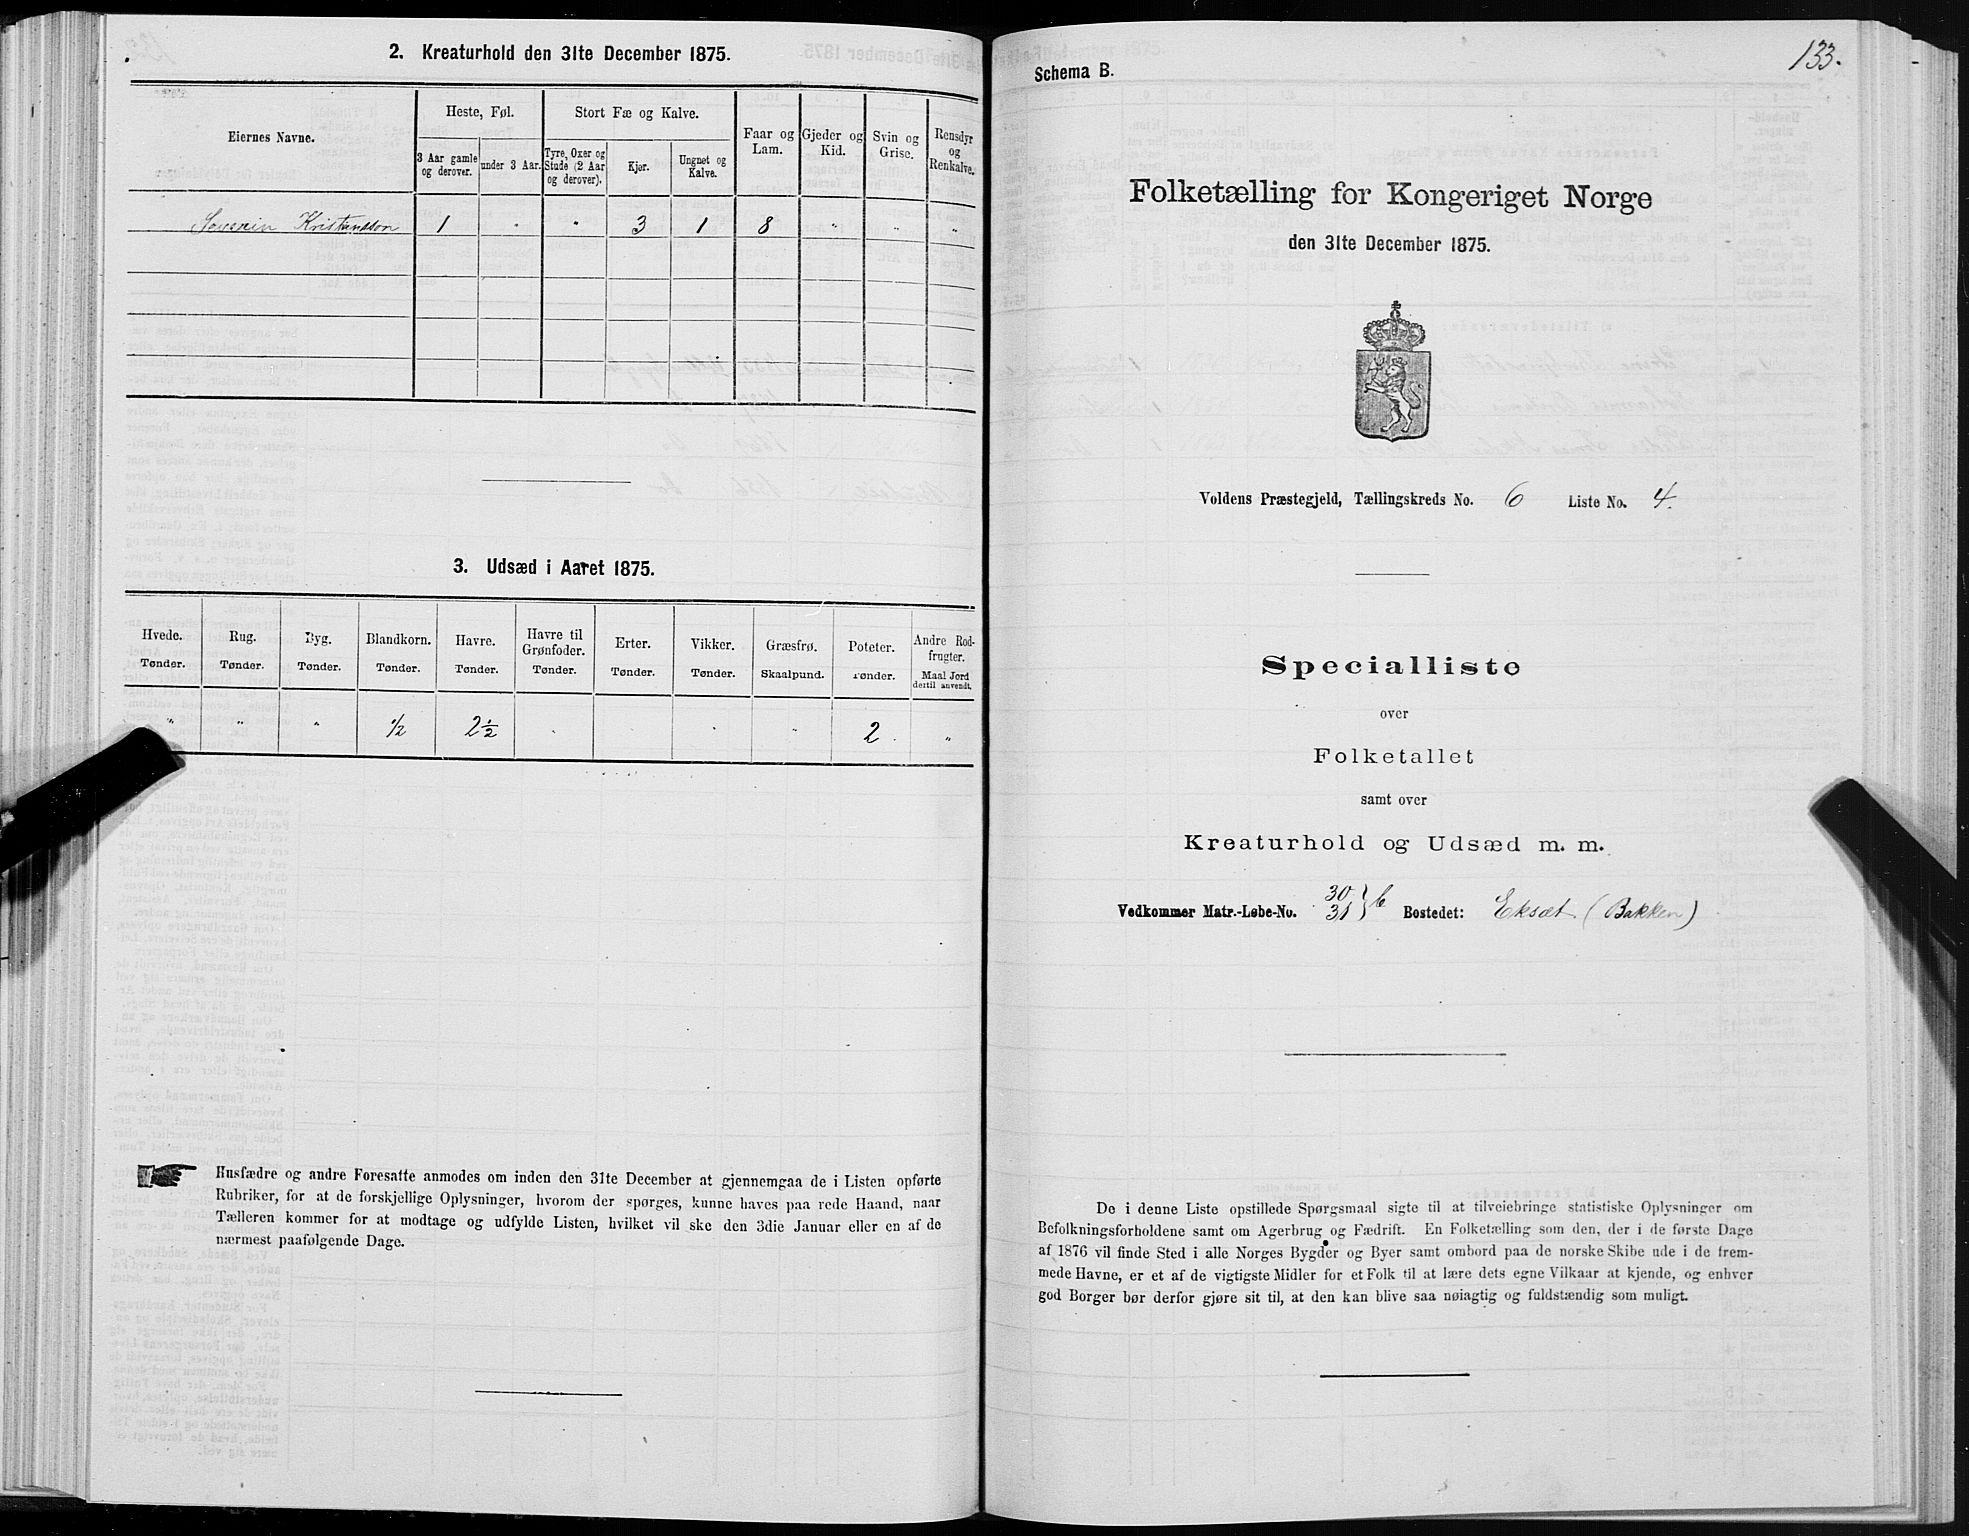 2. Kreaturhold den 31te December 1875.
Eiernes Navne.
Heste, Føl.
Stort Fæ og Kalve.
Faar og Lam.
Gjeder og Kid.
Svin og Grise.
Rensdyr og Renkalve.
3 Aar gamle og derover.
under 3 Aar.
Tyre, Oxer og Stude (2 Aar og derover).
Kjør.
Ungnet og Kalve.
Kristiansson 1 " " 3 1 8 " " "
3. Udsæd i Aaret 1875.
Hvede. Rug. Byg. Blandkorn. Havre. Havre til Grønfoder. Erter. Vikker. Græsfrø. Poteter. Andre Rodfrugter.
Tønder. Tønder. Tønder. Tønder. Tønder. Tønder. Tønder. Tønder. Skaalpund. Tønder. Maal Jord dertil anvendt.
" " " 1/2 2 1/2 " " " " 2 "
Husfædre og andre Foresatte anmodes om inden den 31te December at gjennemgaa de i Listen opførte
Rubriker, for at de forskjellige Oplysninger, hvorom der spørges, kunne haves paa rede Haand, naar
Tælleren kommer for at modtage og udfylde Listen, hvilket vil ske den 3die Januar eller en af de
nærmest paafølgende Dage.
133.
Schema B.
Folketælling for Kongeriget Norge
den 31te December 1875.
Voldens Præstegjeld, Tællingskreds No. 6 Liste No. 4.
Specialliste
over
Folketallet
samt over
Kreaturhold og Udsæd m. m.
Vedkommer Matr.-Løbe-No. 30 31 } b Bostedet: Eksæt (Bakken)
De i denne Liste opstillede Spørgsmaal sigte til at tilveiebringe statistiske Oplysninger om
Befolkningsforholdene samt om Agerbrug og Fædrift. En Folketælling som den, der i de første Dage
af 1876 vil finde Sted i alle Norges Bygder og Byer samt ombord paa de norske Skibe ude i de frem-
mede Havne, er et af de vigtigste Midler for et Folk til at lære dets egne Vilkaar at kjende, og enhver
god Borger bør derfor gjøre sit til, at den kan blive saa nøiagtig og fuldstændig som muligt.